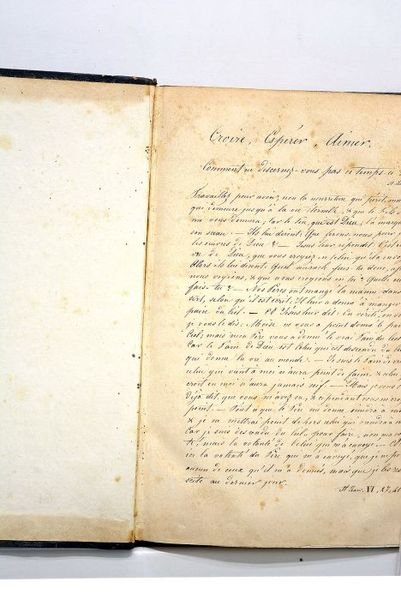 Croire, Espérer, Aimer.
Comment ne discernez-vous pas ce temps-ci
Travaillez pour avoir, non la nourriture qui périt, mais
qui demeure jusqu'à la vie éternelle, & que le Fils
vous donnera; car le Père, qui est Dieu, l'a marqué
son sceau — Ils lui dirent: Que ferons-nous pour
les œuvres de Dieu & — Jésus leur répondit: C'est
de Dieu, que vous croyiez en celui qu'il a envoyé
Alors ils lui dirent: Quel miracle fais-tu donc, afin
nous voyions, & que nous croyions en toi? Quelle
fais-tu & — Nos Pères ont mangé la manne dans
selon qu'il est écrit: Il leur a donné à manger
pain du Ciel. — Et Jésus leur dit: En vérité, en
je vous le dis: Moïse ne vous a point donné le pain
Ciel; mais mon Père vous a donné le vrai Pain du Ciel
Car le Pain de Dieu est Celui qui est descendu du Ciel
qui donne la vie au monde. — Je suis le Pain de vie
celui qui vient à moi n'aura point de faim, & celui
croit en moi n'aura jamais soif — Mais je vous
déjà dit, que vous m'avez vu, & cependant vous ne
point. — Tout ce que le Père me donne viendra à moi
& je ne mettrai point dehors celui qui viendra à
Car je suis descendu du Ciel pour faire, non ma
mais la volonté de Celui qui m'a envoyé —
ici la volonté du Père, qui m'a envoyé, que je ne
aucun de ceux qu'il m'a donnés, mais que je les
au dernier jour.
St Jean. VI, 27,